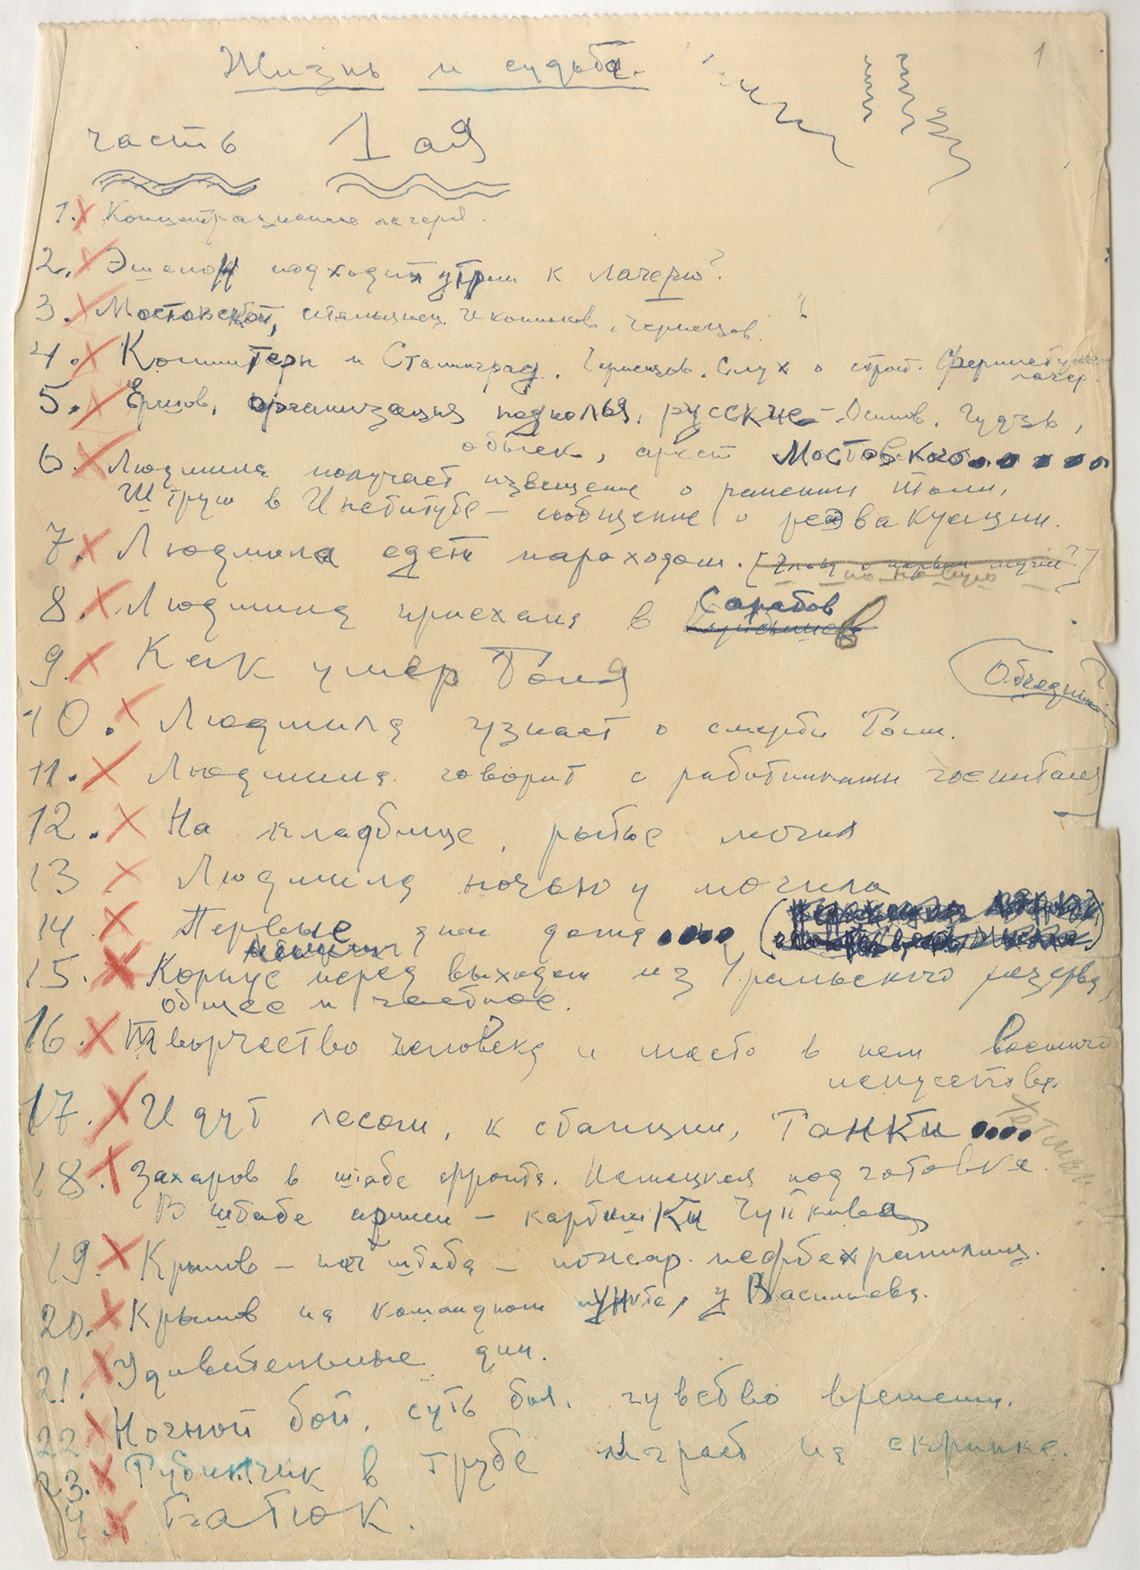 1
Жизнь и судьба.
часть 1 ая
1. Концентрационные лагеря.
2. Эшелон подходит утром к лагерю?
3. Мостовской, итальянец Иконников, Чернецов. ?
4. Коминтерн и Сталинград. Чернецов. Слух о строит.
лагер.
5. Ершов, организация подполья, русские – Осипов, Гудзь,
обыск, арест Мостовского....
6. Людмила получает извещение о ранении Толи,
Штрум в Институте – сообщение о реэвакуации.
7. Людмила едет пароходом.
8. Людмила приехала в Саратов
9. Как умер Толя
Объедин. ?
10. Людмила узнает о смерти Толи.
11. Людмила говорит с работниками госпиталя
12. На кладбище, рытье могил
13 Людмила ночью у могилы
14 Первые дни дома....
15. Корпус перед выходом из Уральского резерва,
общее и частное.
16. Творчество человека и место в нем военного
искусства.
17. Идут лесом, к станции, Танки....
18. Захаров в штабе фронта. Немецкая подготовка.
В штабе армии – картинки Чуйкова
19. Крылов – нач штаба – пожар нефтехранилищ.
20. Крылов на командном пункте, у Васильева.
21. Удивительные дни.
22. Ночной бой, суть боя. чувство времени.
23. Рубинчик в трубе играет на скрипке.
4. Батюк.